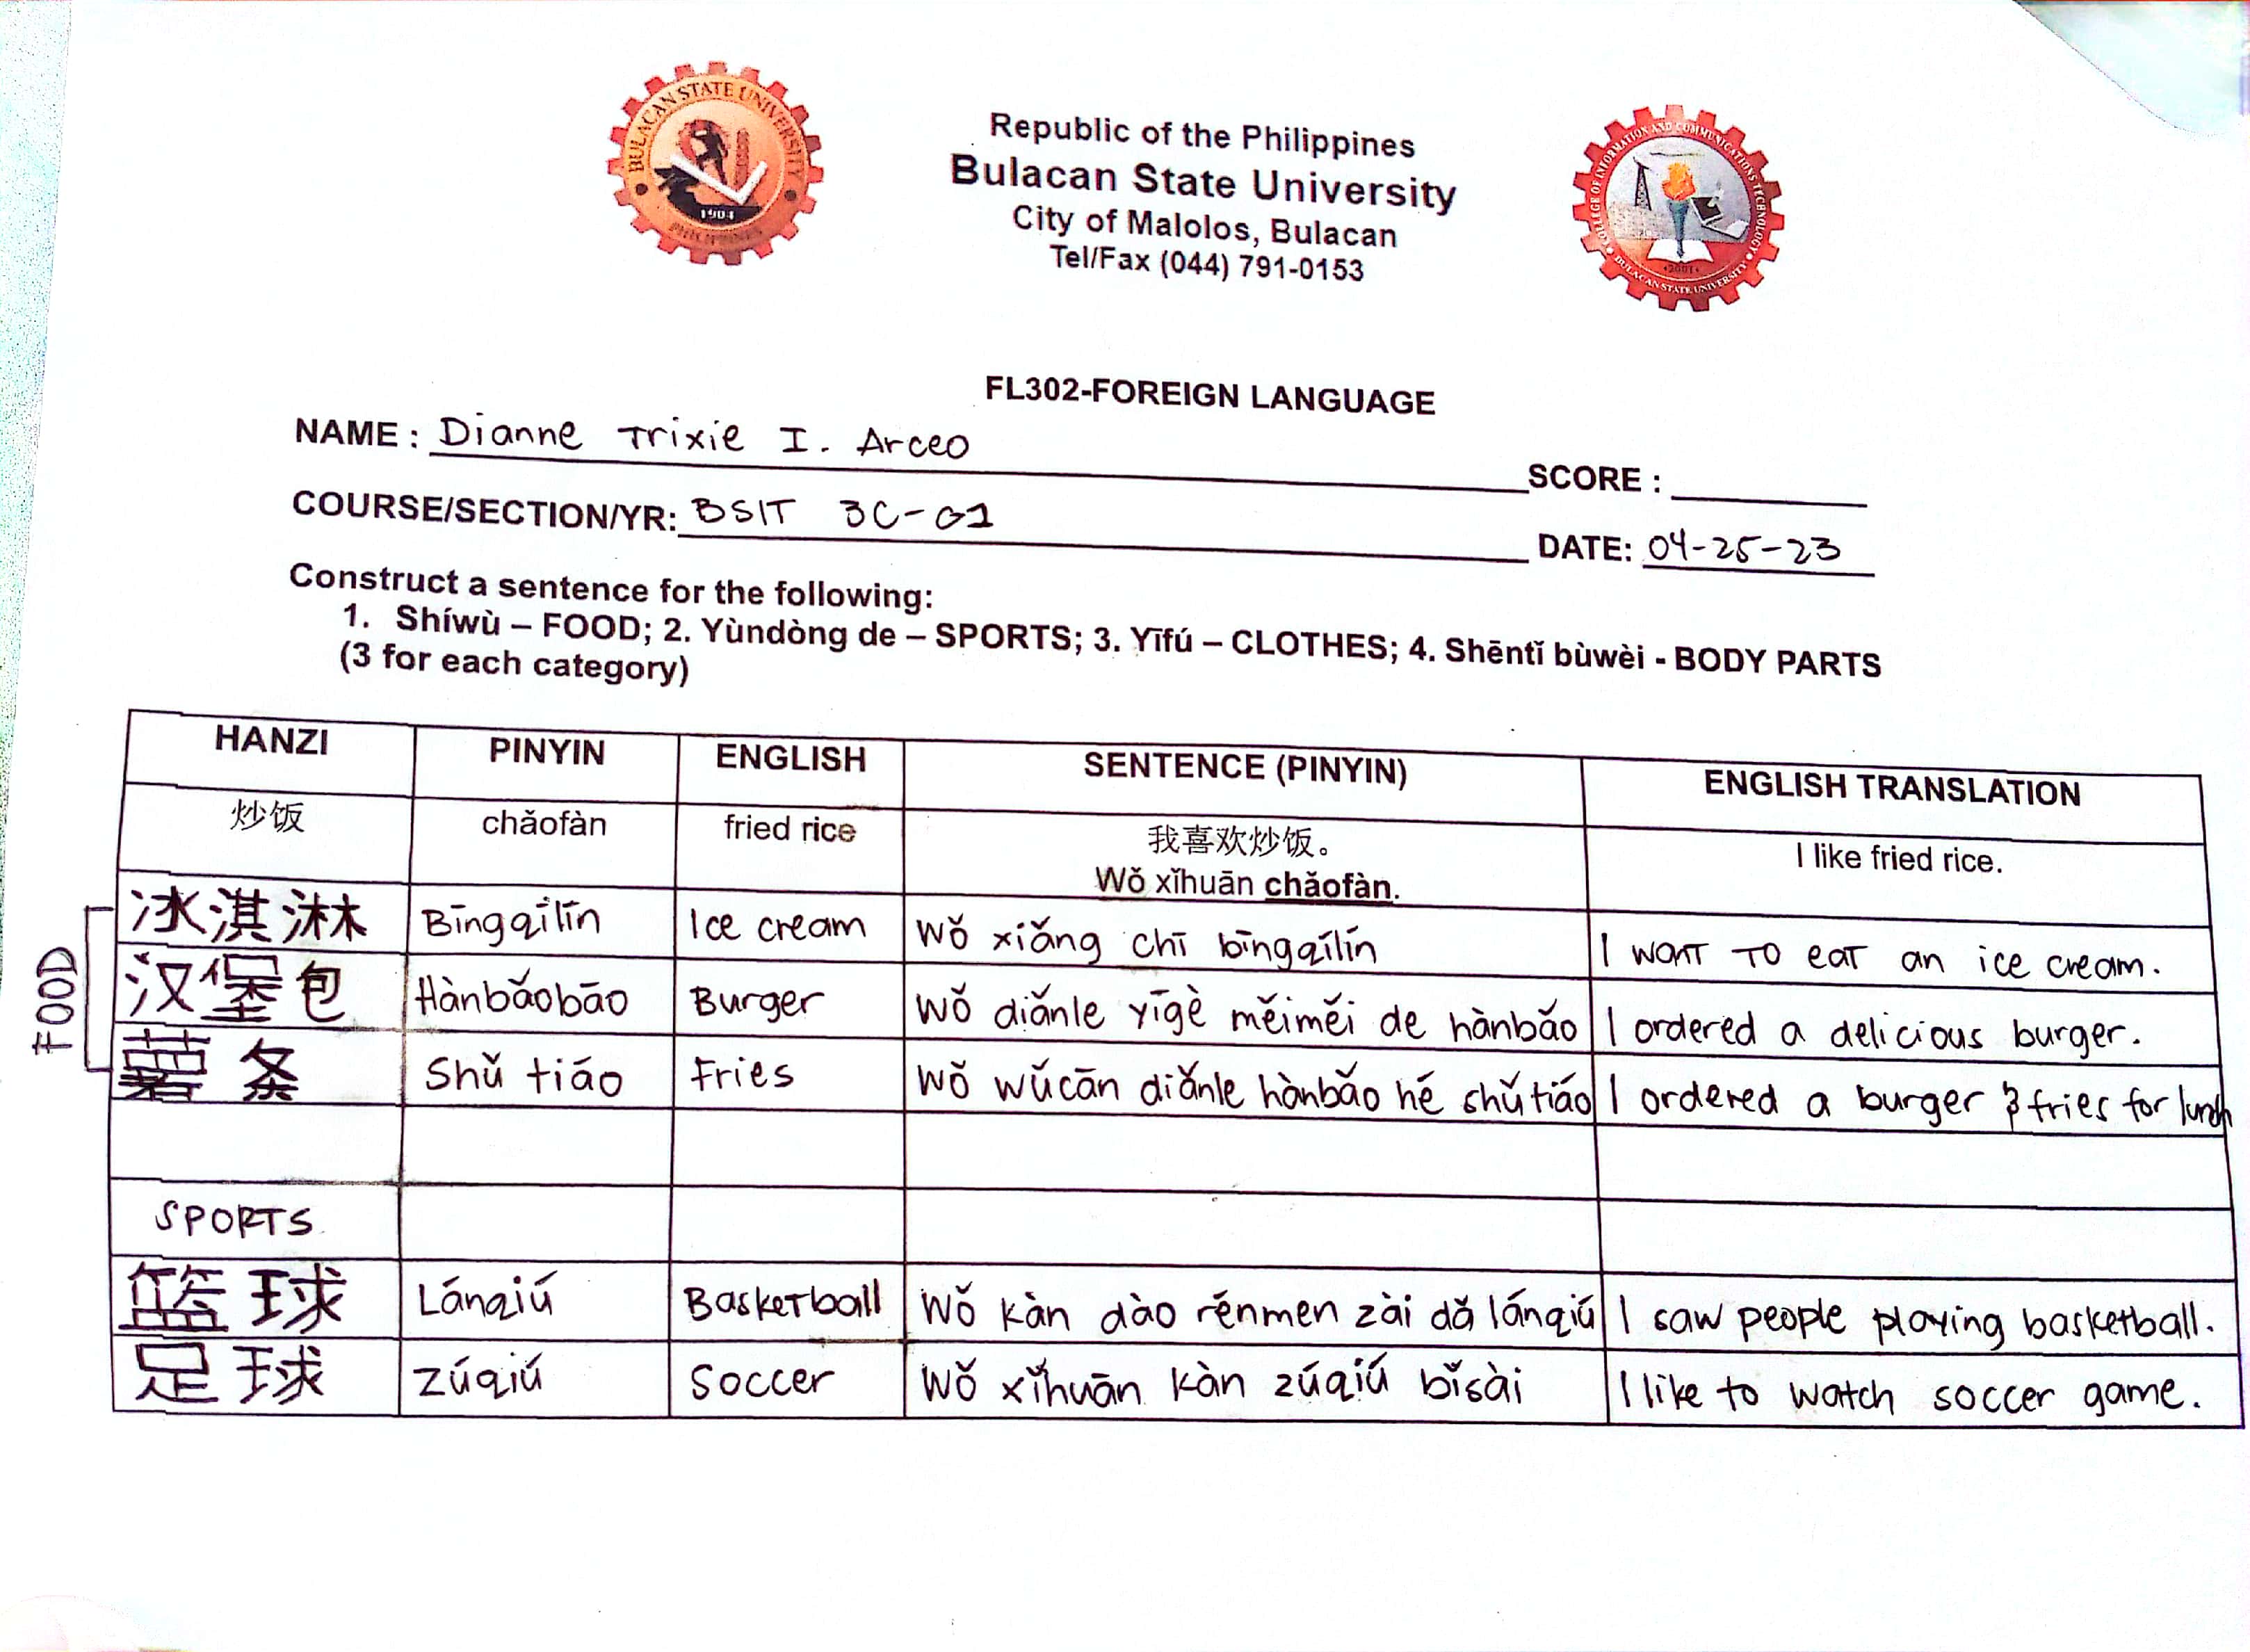 BULACAN STATE UNIVERSITY
1904
PHILIPPINES
Republic of the Philippines
Bulacan State University
City of Malolos, Bulacan
Tel/Fax (044) 791-0153
COLLEGE OF INFORMATION AND COMMUNICATIONS TECHNOLOGY
2001
BULACAN STATE UNIVERSITY
FL302-FOREIGN LANGUAGE
NAME : Dianne Trixie I. Arceo
SCORE :
COURSE/SECTION/YR: BSIT 3C-G1
DATE: 04-25-23
Construct a sentence for the following:
1. Shíwù – FOOD; 2. Yùndòng de – SPORTS; 3. Yīfú – CLOTHES; 4. Shēntǐ bùwèi - BODY PARTS
(3 for each category)
HANZI PINYIN ENGLISH SENTENCE (PINYIN) ENGLISH TRANSLATION
炒饭 chǎofàn fried rice 我喜欢炒饭。 I like fried rice.
Wǒ xǐhuān chǎofàn.
FOOD
冰淇淋 Bīngqílín Ice cream Wǒ xiǎng chī bīngqílín I want to eat an ice cream.
汉堡包 Hànbǎobāo Burger Wǒ diǎnle yīgè měiměi de hànbǎo I ordered a delicious burger.
薯条 Shǔ tiáo Fries Wǒ wǔcān diǎnle hànbǎo hé shǔtiáo I ordered a burger & fries for lunch
SPORTS
篮球 Lánqiú Basketball Wǒ kàn dào rénmen zài dǎ lánqiú I saw people playing basketball.
足球 Zúqiú Soccer Wǒ xǐhuān kàn zúqiú bǐsài I like to watch soccer game.